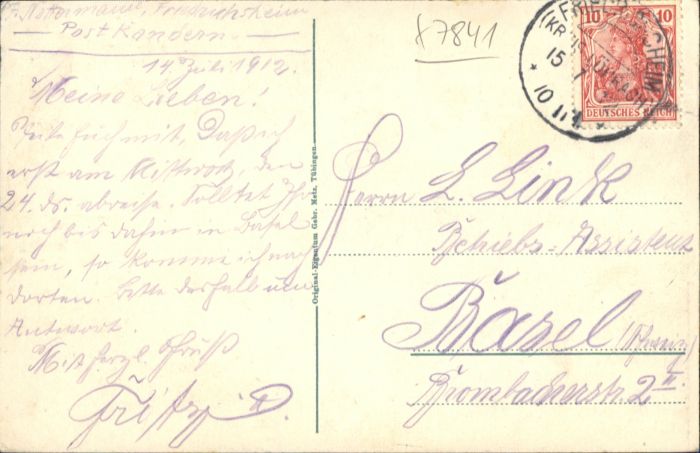 Friedrichsheim
Post Kandern.
14. Juli 1912.
Meine Lieben!
Teile Euch mit, Daß ich
erst am Mittwoch, den
24. ds. abreise. Solltet Ihr
noch bis dahin in Basel
sein, so komme ich nach
dorten. Bitte deshalb um
Antwort.
Mit herzl. Gruß
Fritz D.
X7841
10 10
DEUTSCHES REICH
15 7
10 11 V
Original-Eigentum Gebr. Metz, Tübingen
Herrn L. Link
Betriebs-Assistent
Basel
Brombacherstr. 2 II.